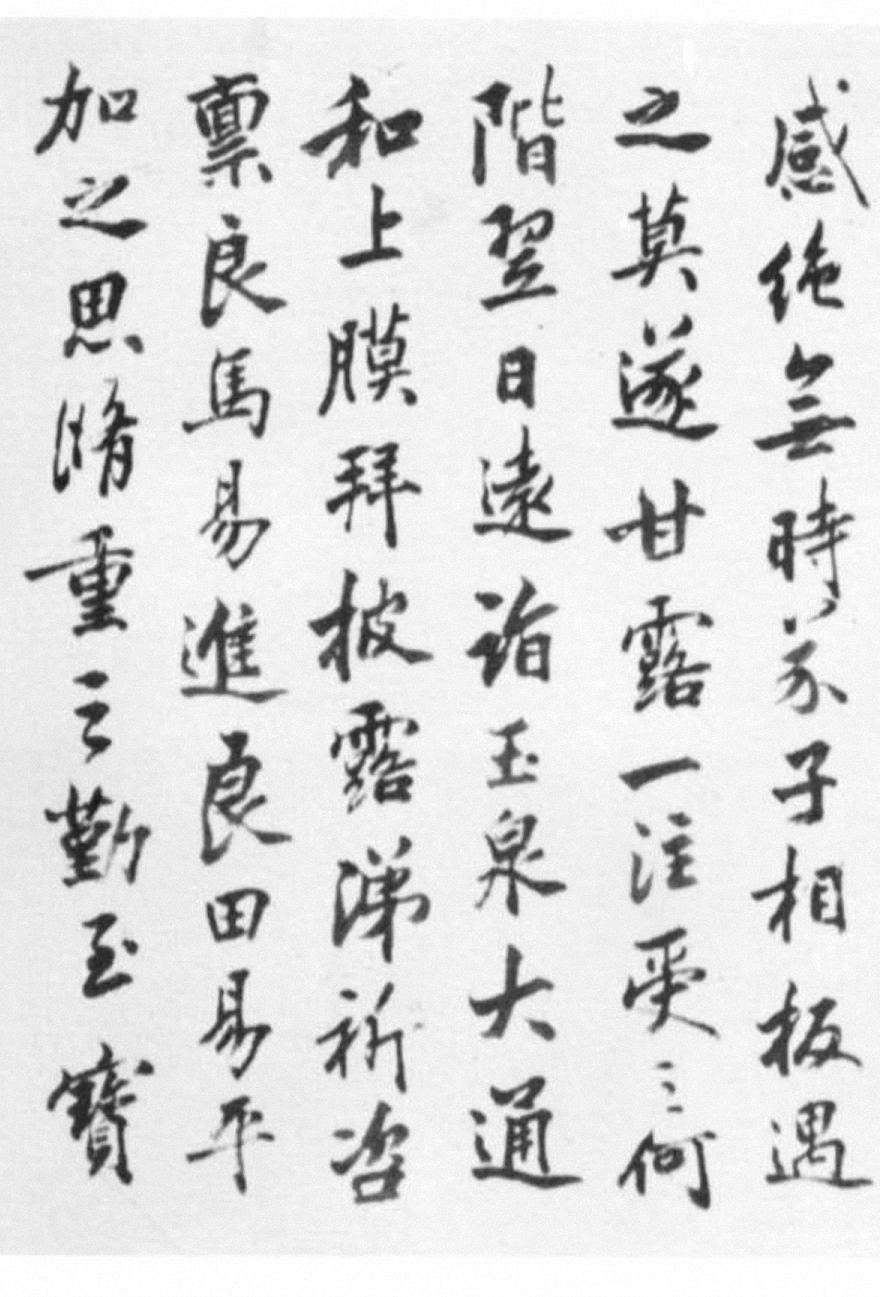 感絶無時不子相板遇
之莫遂甘露一注受〻何
階翌日遠詣玉泉大通
和上膜拜披露涕祈咨
禀良馬易進良田易平
加之思脩重之勤至寶